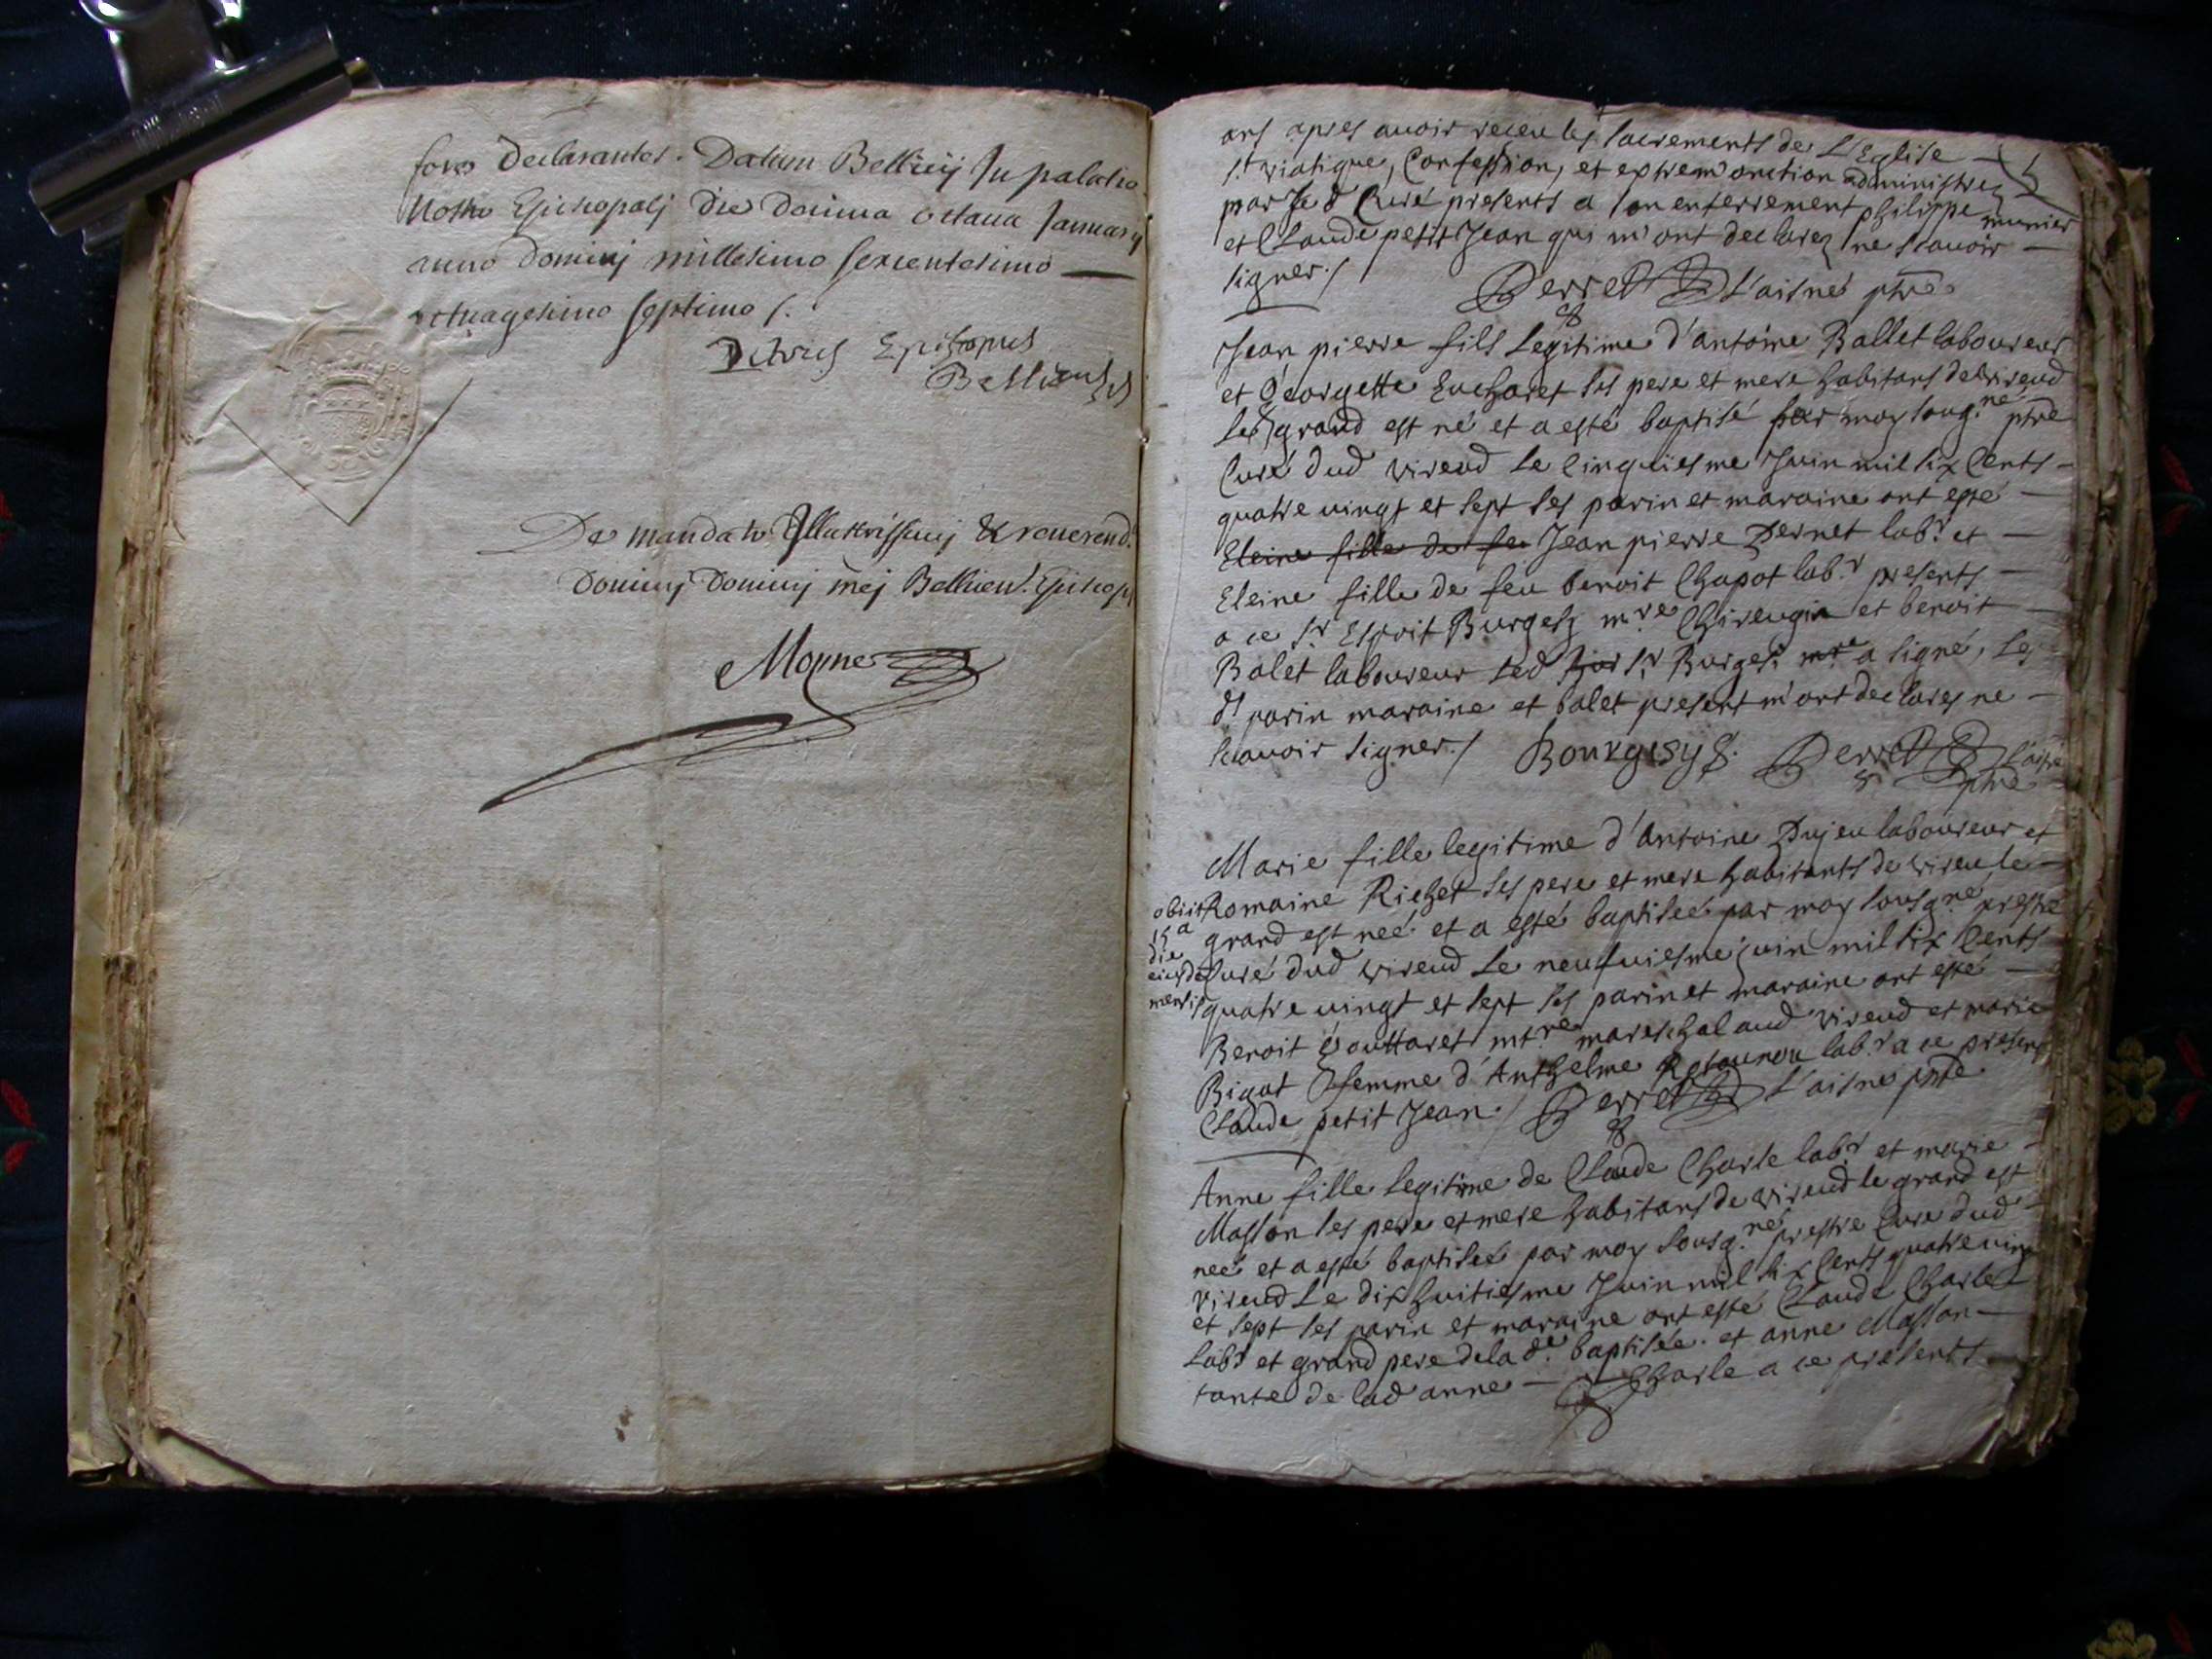 fore declarantes. Datum Bellicij In palatio
Nostro Episcopalj die decima octava Januarij
anno dominj millesimo sexcentesimo
octuagesimo septimo /.
Petrus Episcopus
Bellicensis
De mandato Illustrissimj & reverend.
Dominj Dominj mej Bellicen. Episcopj
Monne
ans apres auoir receu les sacrements de L'Eglise
st viatique, Confession, et extrem'onction administrez
par le d Curé presents a son enterrement philippe munier
et Claude petit Jean qui m'ont declarez ne scauoir
signer./
Perret L'aisné ptre
Jean pierre fils Legitime d'antoine Ballet laboureur
et Georgette Eucharet ses pere et mere habitans de vireud
le grand est né et a esté baptisé par moy sousg.né ptre
Curé dud vireud Le cinquiesme Juin mil six Cents
quatre vingt et sept ses parin et maraine ont esté
Eleine fille de feu Jean pierre Pernet lab.r et
Eleine fille de feu benoit Chapot lab.r presents
a ce s.r Esprit Burgesy m.re Chireugin et benoit
Balet laboureur led s.r Burgesi m.re a signé, Les
d.s parin maraine et balet present m'ont declares ne
scauoir signer./ Bourgesy Perret L'aisné
ptre
Marie fille legitime d'Antoine Dujeu laboureur et
Romaine Richet ses pere et mere habitants de vireu le
grand est neé et a esté baptiseé par moy sousg.né prestre
Curé dud vireud Le neufuiesme juin mil six Cents
quatre vingt et sept ses parin et maraine ont esté
obiit
15a
die
eiusdē
mensis
Benoit Gouttaret mt.re mareschal aud vireud et marie
Bigot femme d'Anthelme lab.r a ce present
Claude petit Jean./ Perret L'aisné ptre
Anne fille legitime de Claude Charle lab.r et marie
Masson ses pere et mere habitans de vireud le grand est
neé et a esté baptiseé par moy sousg.né prestre Curé dud
vireud Le dix huitiesme Juin mil six Cents quatre ving
et sept ses parin et maraine ont esté Claude Charle
Lab.r et grand pere de la d.e baptisée et anne Masson
tante de lad anne Charle a ce presents